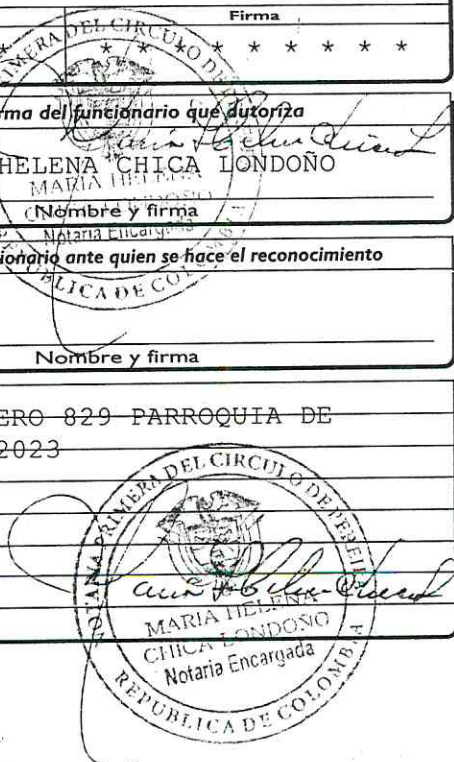 Firma
* * * * * * * * * *
rma del funcionario que autoriza
HELENA CHICA LONDOÑO
MARIA HELENA
Nombre y firma
Notaria Encargada
ionario ante quien se hace el reconocimiento
REPUBLICA DE COLOMBIA
Nombre y firma
ERO 829 PARROQUIA DE
2023
NOTARIA PRIMERA DEL CIRCULO DE PEREIRA
MARIA HELENA
CHICA LONDOÑO
Notaria Encargada
REPUBLICA DE COLOMBIA